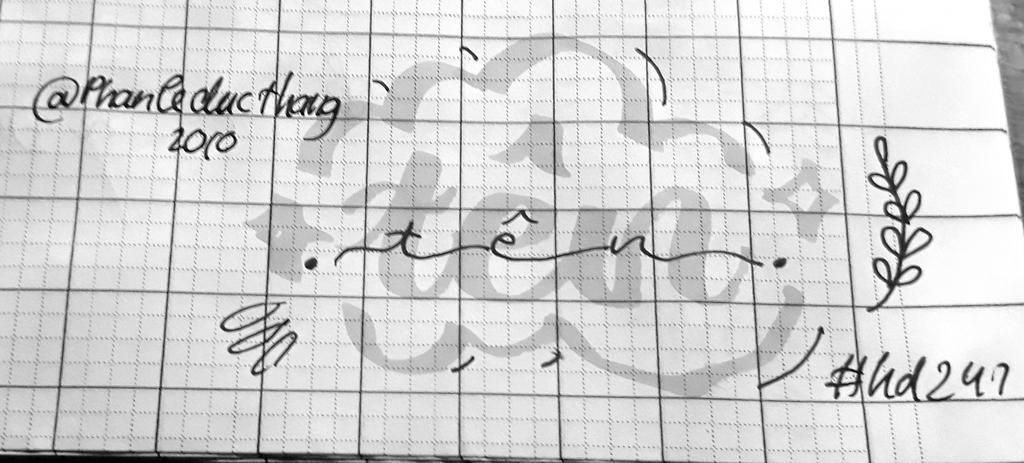 @Phanleducthang
2010
tên
tên
#hd247